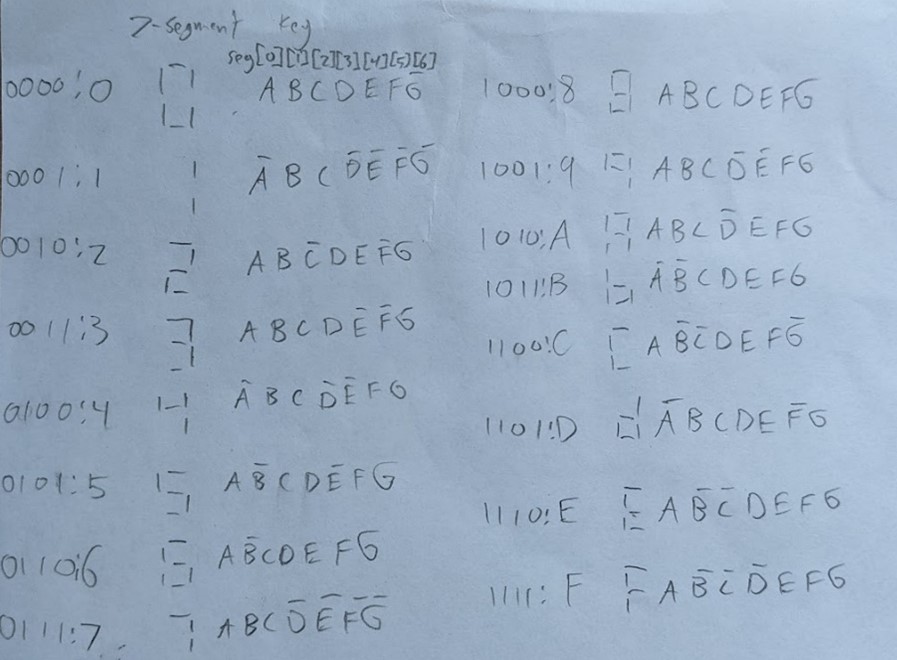 7-segment key
seg[0][1][2][3][4][5][6]
0000:0 A B C D E F G̅
0001:1 A̅ B C D̅ E̅ F̅ G̅
0010:2 A B C̅ D E F̅ G
0011:3 A B C D E̅ F̅ G
0100:4 A̅ B C D̅ E̅ F G
0101:5 A B̅ C D E̅ F G
0110:6 A B̅ C D E F G
0111:7 A B C D̅ E̅ F̅ G̅
1000:8 A B C D E F G
1001:9 A B C D̅ E̅ F G
1010:A A B C D̅ E F G
1011:B A̅ B̅ C D E F G
1100:C A B̅ C̅ D E F G̅
1101:D A̅ B C D E F̅ G
1110:E A B̅ C̅ D E F G
1111:F A B̅ C̅ D̅ E F G